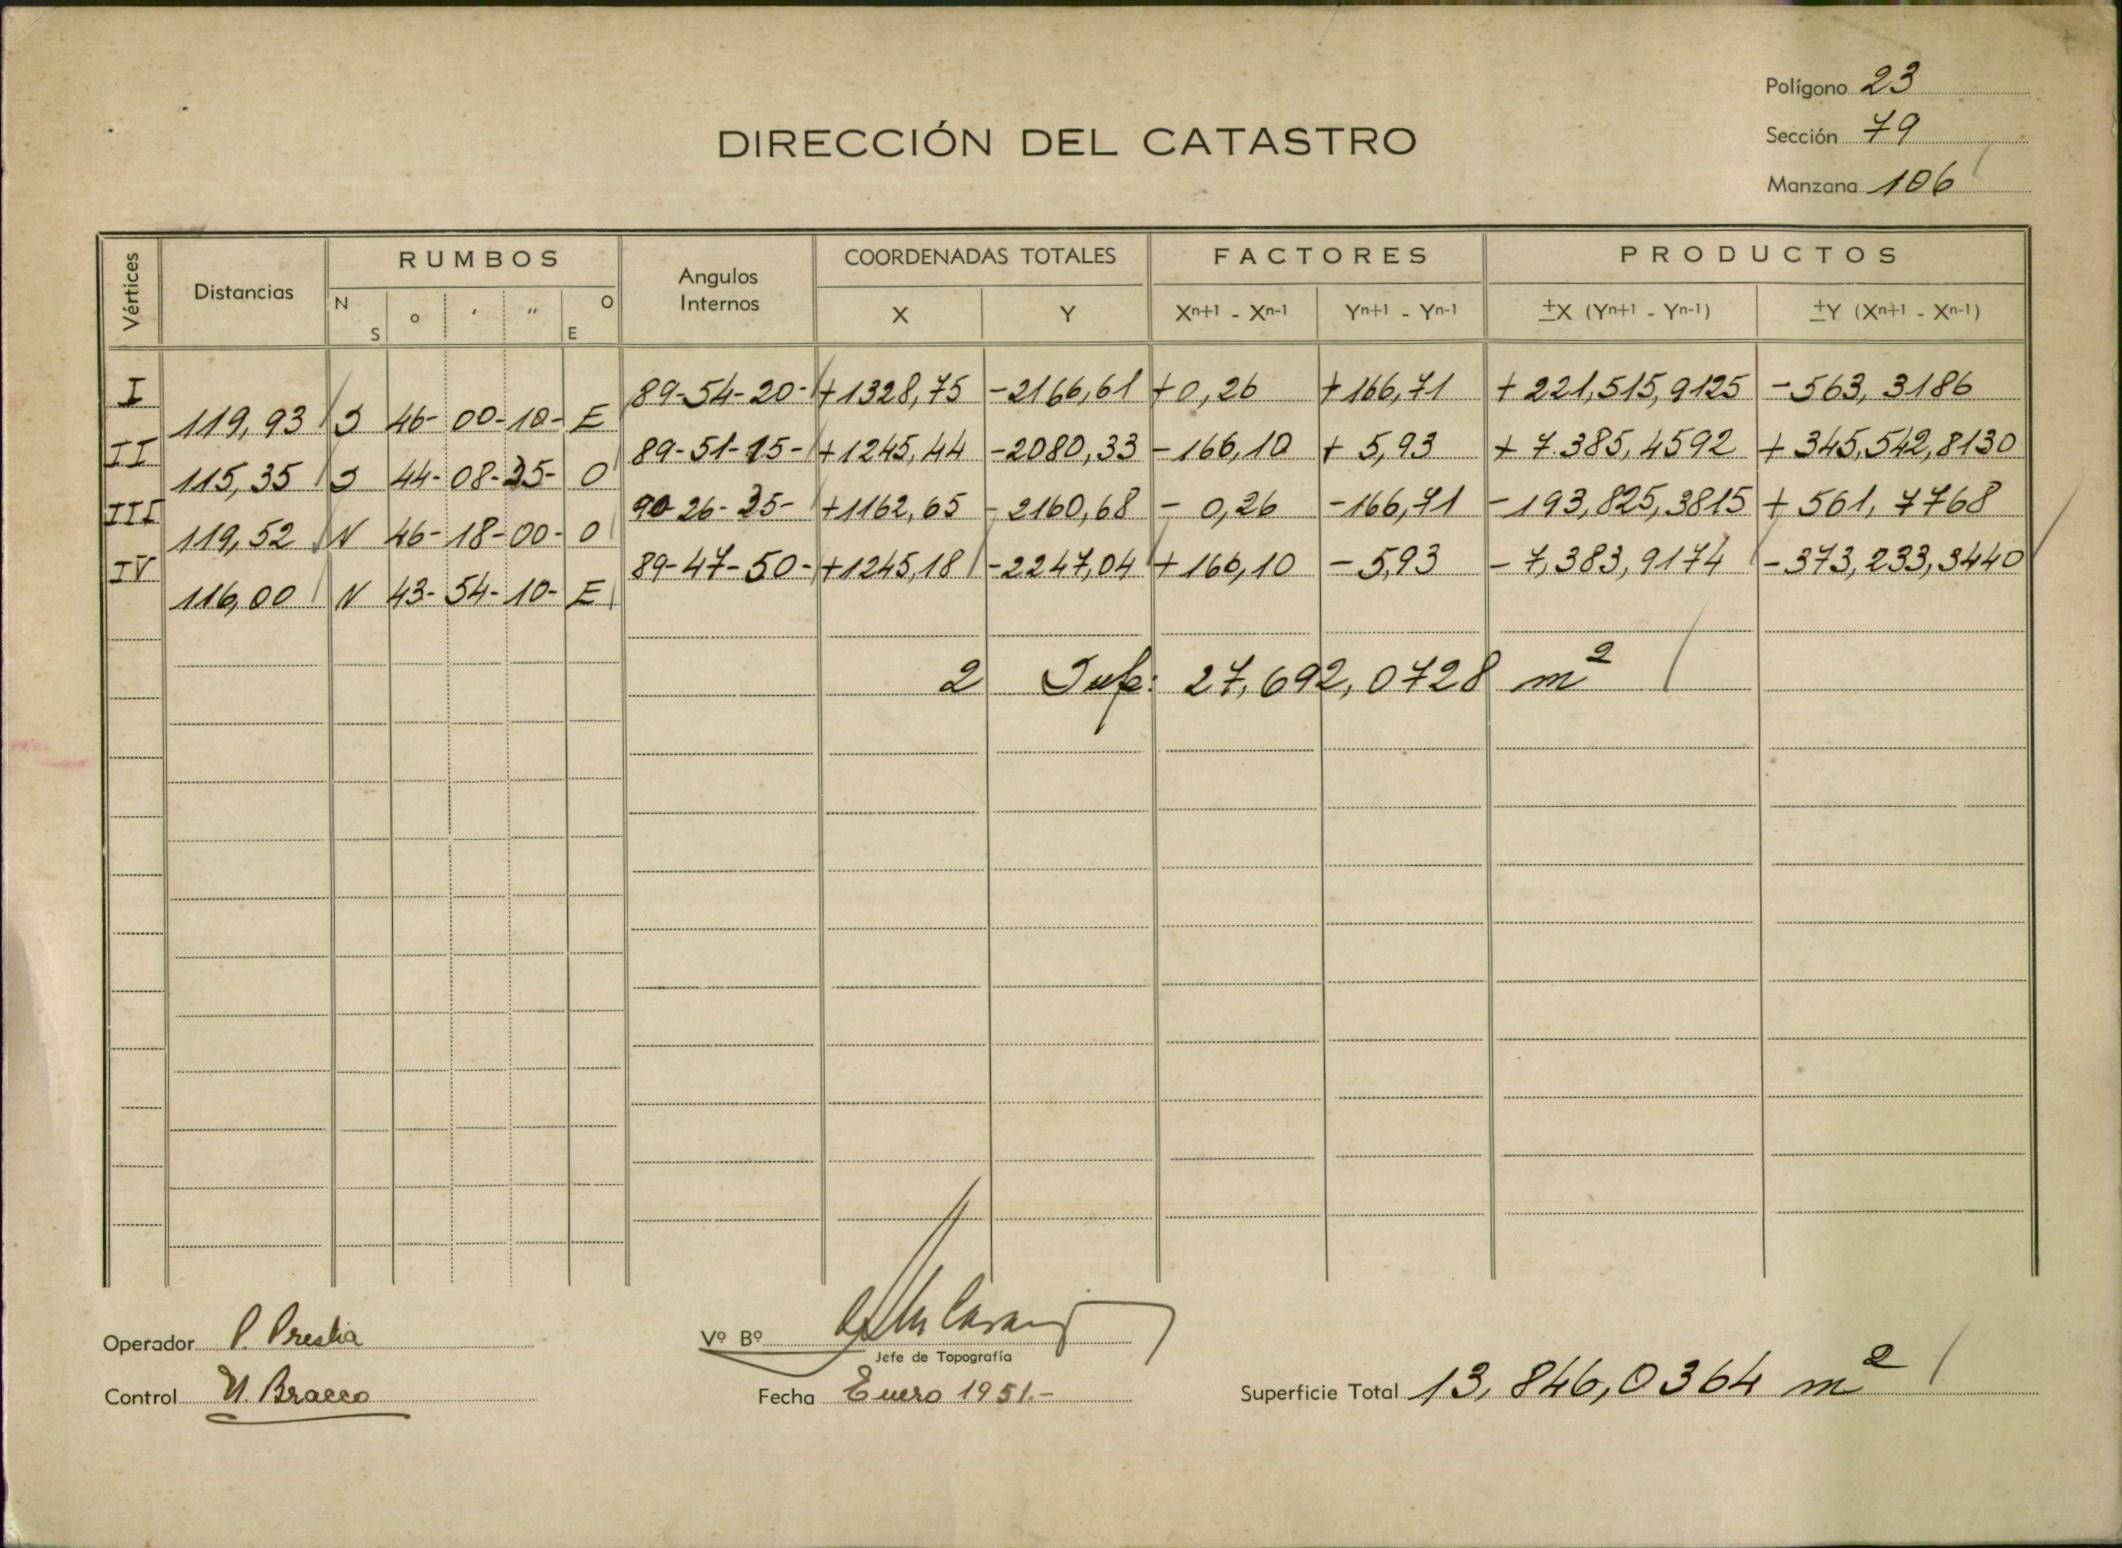 Polígono 23
DIRECCIÓN DEL CATASTRO
Sección 79
Manzana 106
Vértices Distancias RUMBOS Angulos Internos COORDENADAS TOTALES FACTORES PRODUCTOS
N S o ' " O E X Y Xn+1 - Xn-1 Yn+1 - Yn-1 ±X (Yn+1 - Yn-1) ±Y (Xn+1 - Xn-1)
I 89-54-20- +1328,75 -2166,61 +0,26 +166,71 +221,515,9125 -563,3186
119,93 S 46- 00-10- E
II 89-51-15- +1245,44 -2080,33 -166,10 + 5,93 + 7.385,4592 +345,542,8130
115,35 S 44- 08-35- O
III 90-26-35- +1162,65 -2160,68 - 0,26 -166,71 -193,825,3815 +561,7768
119,52 N 46-18-00- O
IV 89-47-50- +1245,18 -2247,04 +166,10 -5,93 -7,383,9174 -373,233,3440
116,00 N 43-54-10- E
2 Sup: 27,692,0728 m²
Operador P. Prestia
Vº Bº
Jefe de Topografía
Control N. Bracco
Fecha Enero 1951.-
Superficie Total 13,846,0364 m²